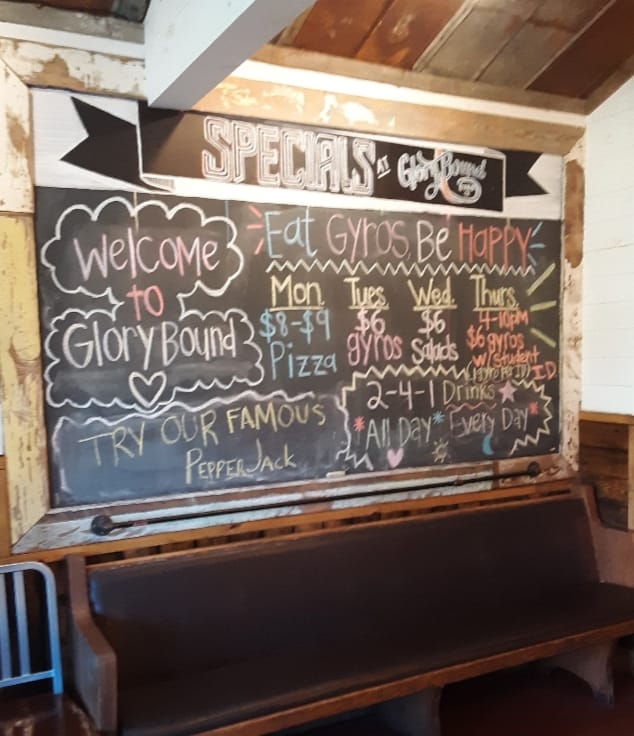 SPECIALS AT Glory Bound
Welcome
to
Glory Bound
Eat Gyros, Be Happy
Mon.
$8-$9
Pizza
Tues.
$6
gyros
Wed.
$6
Salads
Thurs.
4-10pm
$6 gyros
w/ Student
I.D.
2-4-1 Drinks
*All Day* Every Day*
TRY OUR FAMOUS
PEPPER JACK